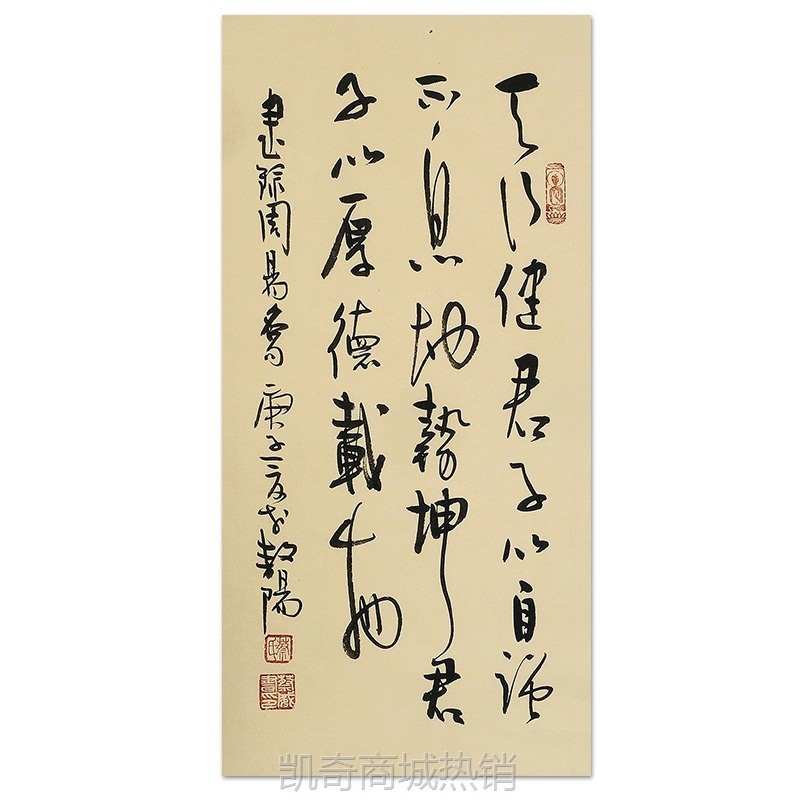 天行健君子以自强
不息地势坤君
子以厚德載物
書録周易句 庚子之夏於
凯奇商城热销